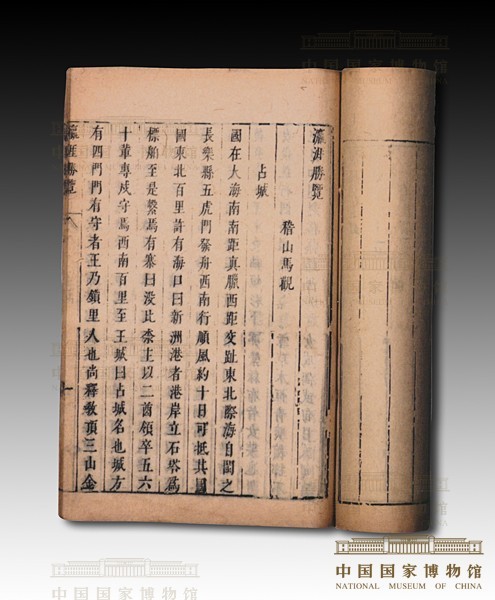 瀛涯勝覽
稽山馬觀
占城
國在大海南南距真臘西距交趾東北際海自閩之
長樂縣五虎門發舟西南行順風約十日可抵其國
國東北百里許有海口曰新洲港者港岸立石塔爲
標舶至是繫焉有寨曰設比柰主以二酋領卒五六
十輩專戍守焉西南百里至王城曰占城名也城方
有四門門有守者王乃鎖里人也尚釋教頂三山金
瀛涯勝覽 一
中国国家博物馆
NATIONAL MUSEUM OF CHINA